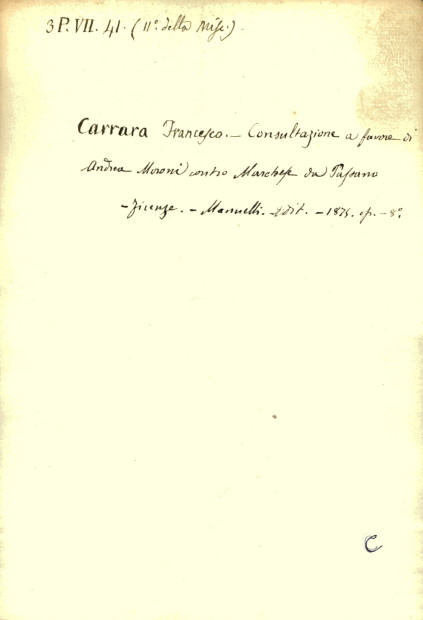 3 P. VII. 41. (11°. della Misc.)
Carrara Francesco. — Consultazione a favore di
Andrea Moroni contro Marchese da Passano
— Firenze. — Mannelli. Edit. — 1875. op. — 8°.
C